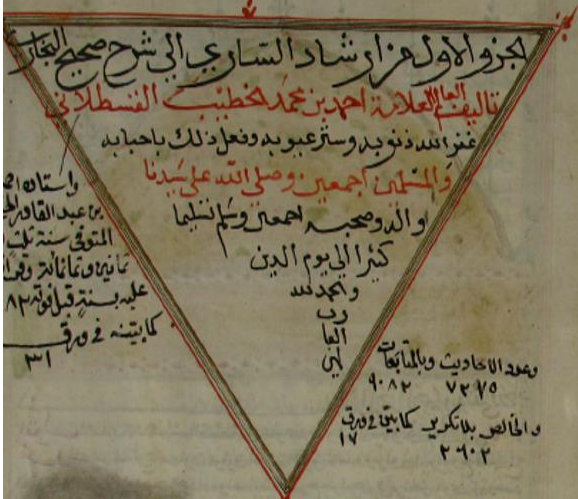 الجزو الاول من ارشاد الساري الي شرح صحيح البخاري
تاليف العالم العلامة احمد بن محمد الخطيب القسطلاني
غفر الله ذنوبه وستر عيوبه وفعل ذلك باحبابه
والمسلمين اجمعين وصلي الله علي سيدنا
واله وصحبه اجمعين وسلم تسليما
كثيرا الي يوم الدين
والحمد لله
رب
العا
لمين
واستاذه احمد
بن عبد القادر
المتوفي سنة ثلث
ثمانين وثمانمائة
عليه بسنة قبل فوته ٨٢
كما بينته في ورق
٣١
وعدد الاحاديث وبالمتابعات
٧٢٧٥ ٩٠٨٢
والخالص بلا تكرير كما بين في ورق
٢٦٠٢ ١٧